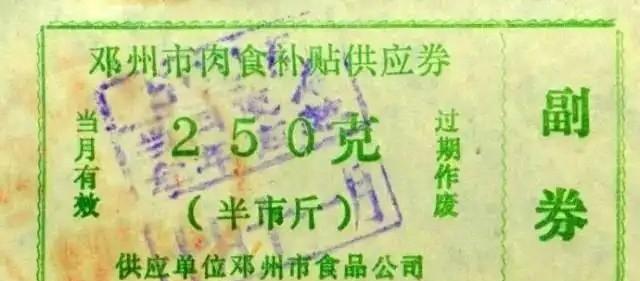 邓州市肉食补贴供应券
当月有效
250克
过期作废
(半市斤)
供应单位邓州市食品公司
副券